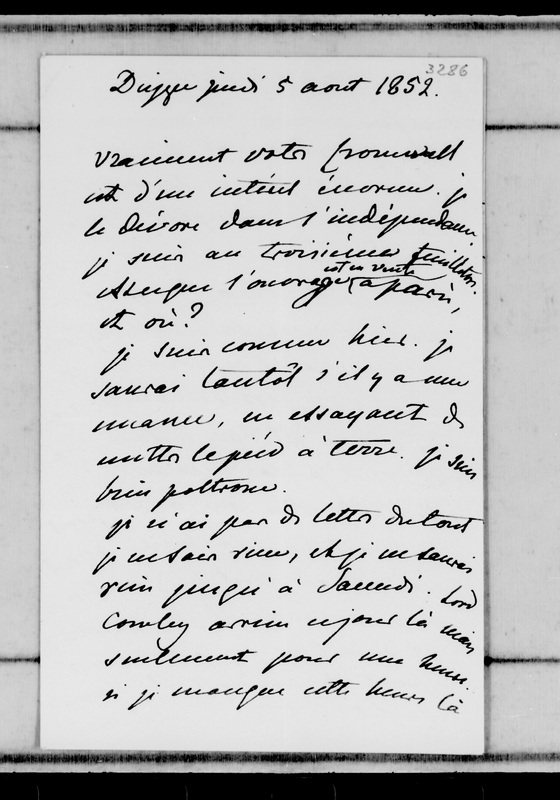 3286
Dieppe jeudi 5 aout 1852.
Vraiment votre Cromwell
est d'un intérêt énorme. je
le dévore dans l'indépendance.
je suis au troisième feuilleton.
est-ce que l'ouvrage est en vente à paris,
et où?
je suis comme hier. je
saurai tantôt s'il y a une
nuance, en essayant de
mettre le pied à terre. je suis
bien poltronne.
je n'ai pas de lettre du tout
je ne sais rien, et je ne saurai
rien jusqu'à Samedi. Lord
Cowley arrive ce jour là mais
seulement pour une heure.
si je manque cette heure là